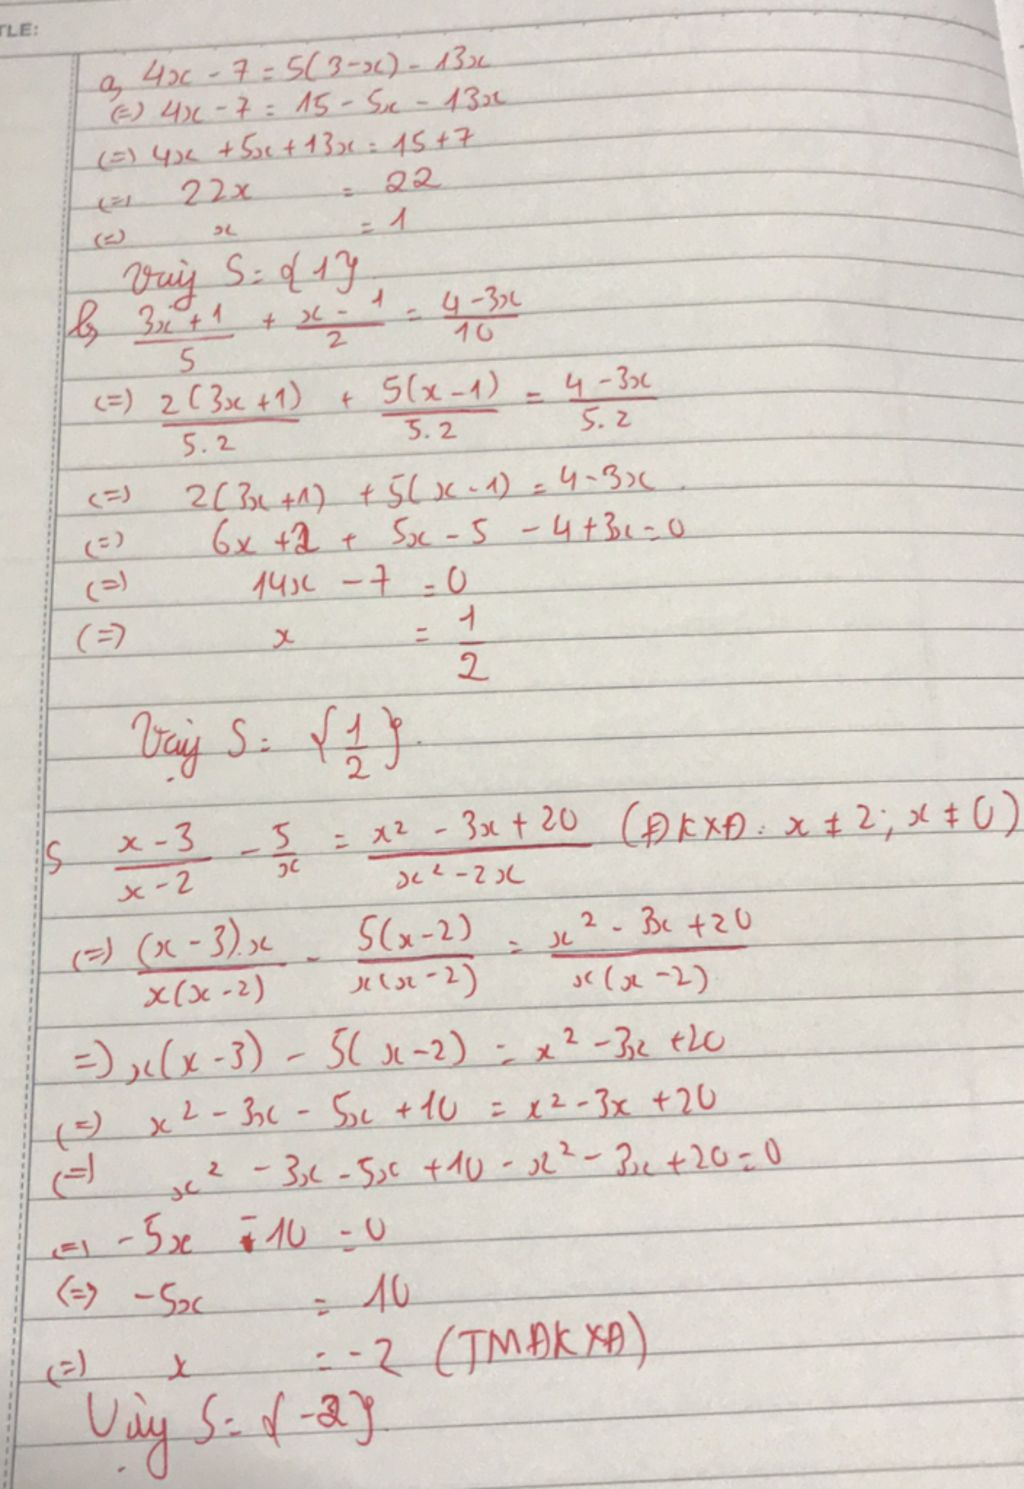 TLE:
a, 4x - 7 = 5(3-x) - 13x
(=) 4x - 7 = 15 - 5x - 13x
(=) 4x + 5x + 13x = 15 + 7
(=) 22x = 22
(=) x = 1
Vậy S = {1}
b, \frac{3x+1}{5} + \frac{x-1}{2} = \frac{4-3x}{10}
(=) \frac{2(3x+1)}{5.2} + \frac{5(x-1)}{5.2} = \frac{4-3x}{5.2}
(=) 2(3x+1) + 5(x-1) = 4-3x.
(=) 6x + 2 + 5x - 5 - 4 + 3x = 0
(=) 14x - 7 = 0
(=) x = \frac{1}{2}
Vậy S = {\frac{1}{2}}.
\frac{x-3}{x-2} - \frac{5}{x} = \frac{x² - 3x + 20}{x² - 2x} (ĐKXĐ: x ≠ 2; x ≠ 0)
(=) \frac{(x-3).x}{x(x-2)} - \frac{5(x-2)}{x(x-2)} = \frac{x² - 3x + 20}{x(x-2)}
=) x(x-3) - 5(x-2) = x² - 3x + 20
(=) x² - 3x - 5x + 10 = x² - 3x + 20
(=) x² - 3x - 5x + 10 - x² - 3x + 20 = 0
(=) -5x - 10 = 0
(=) -5x = 10
(=) x = -2 (TMĐKXĐ)
Vậy S = {-2}